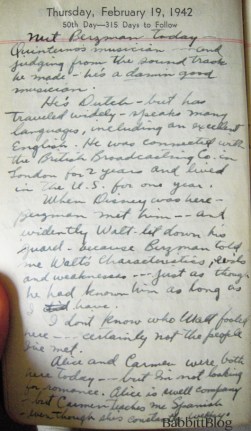 Thursday, February 19, 1942
50th Day—315 Days to Follow
Met Bergman today
musician - - and
judging from the sound track
he made - he's a damn good
musician.
He's Dutch - but has
traveled widely - speaks many
languages, including an excellent
English. He was connected with
the British Broadcasting Co. in
London for 2 years and lived
in the U.S. for one year.
When Disney was here -
Bergman met him - - and
evidently Walt let down his
guard - because Bergman told
me Walt's characteristics,
and weaknesses - - - just as though
he had known him as long as
I have.
I don't know who Walt fooled
here - - - certainly not the people
I've met.
Alice and Carmen were both
here today - - but I'm not looking
for romance. Alice is swell company
- but Carmen teaches me Spanish
BabbittBlog